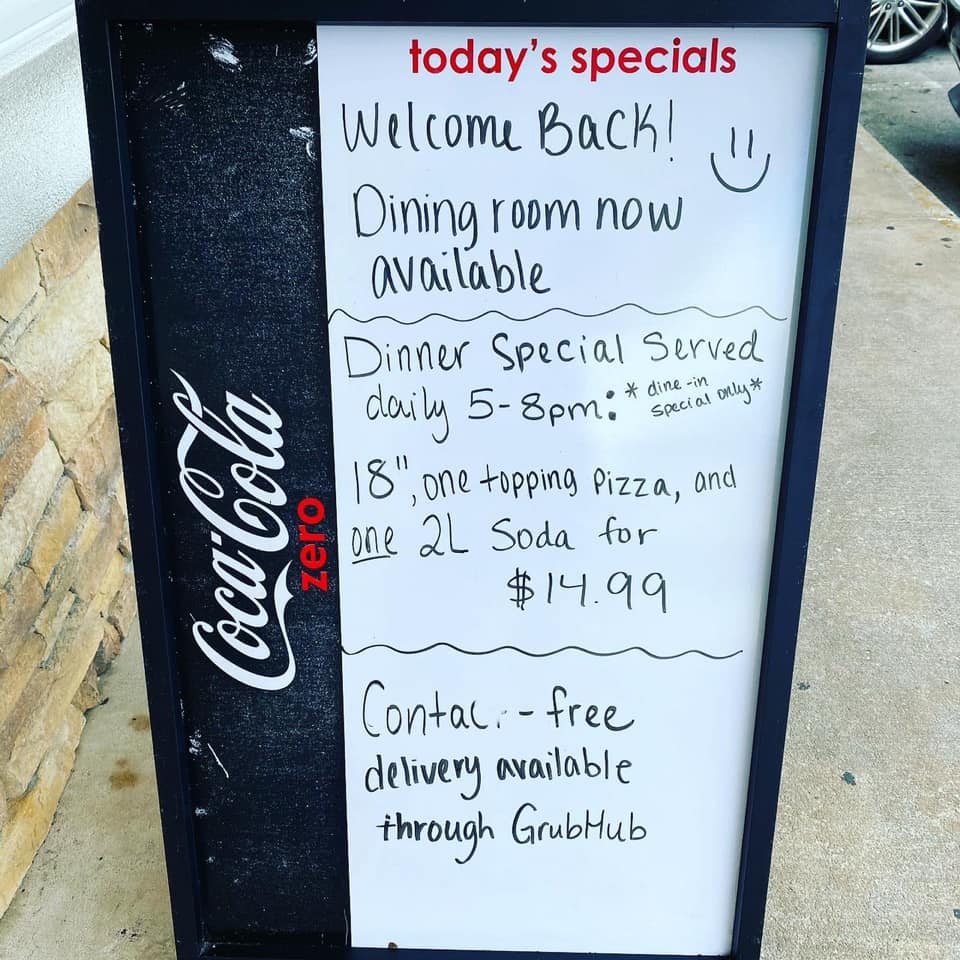 today's specials
Welcome Back!
Dining room now
available
Dinner Special Served
daily 5-8pm: * dine-in
special only *
18", one topping Pizza, and
one 2L Soda for
$14.99
Contac - free
delivery available
through GrubHub
Coca-Cola
zero